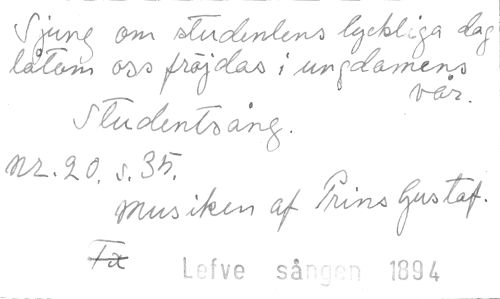 Sjung om studentens lyckliga dag
låtom oss fröjdas i ungdomens
vår.
Studentsång.
Nr. 20. s. 35.
Musiken af Prins Gustaf.
Fx
Lefve sången 1894